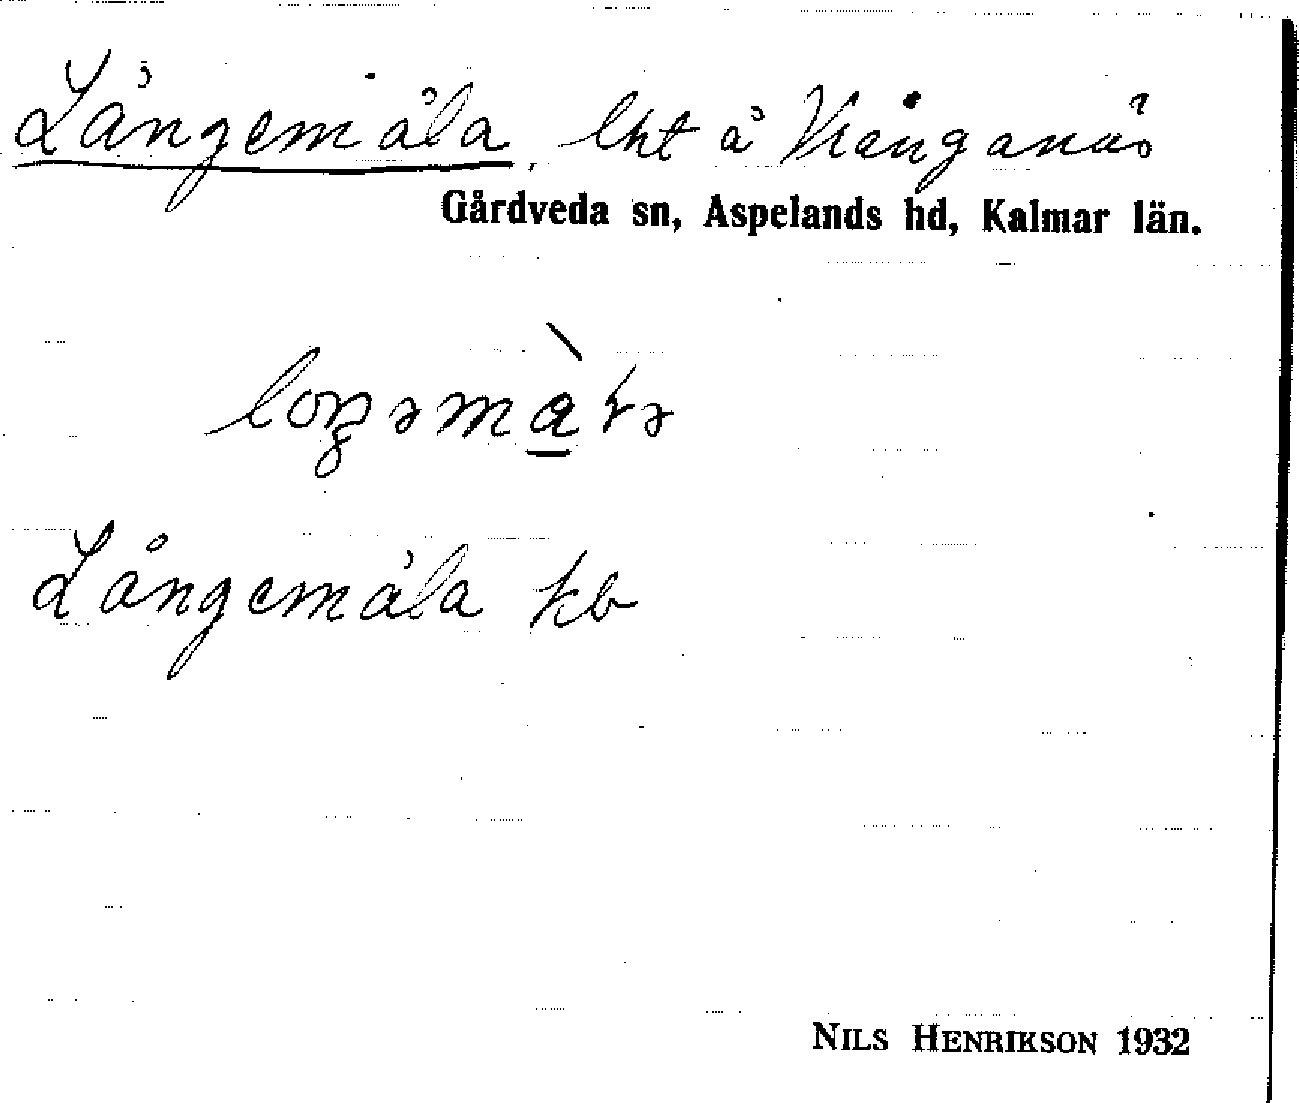 Långemåla, lht å Vrånganäs
Gårdveda sn, Aspelands hd, Kalmar län.
Långemåla kb
NILS HENRIKSON 1932